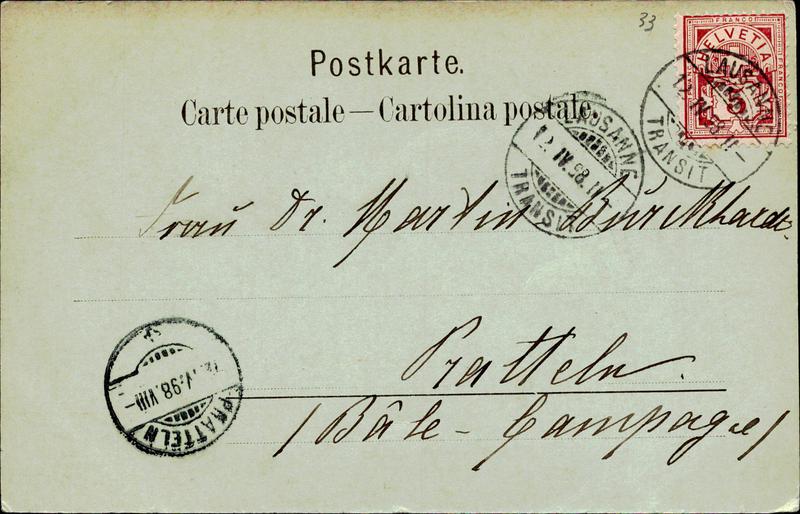 33
FRANCO
HELVETIA
Postkarte.
Carte postale — Cartolina postale.
LAUSANNE
12.IV.98.II-
TRANSIT
LAUSANNE
12.IV.98.II
TRANSIT
Frau Dr. Martin Burckhardt
Pratteln.
(Bâle-Campagne)
98.VIII-
PRATTELN